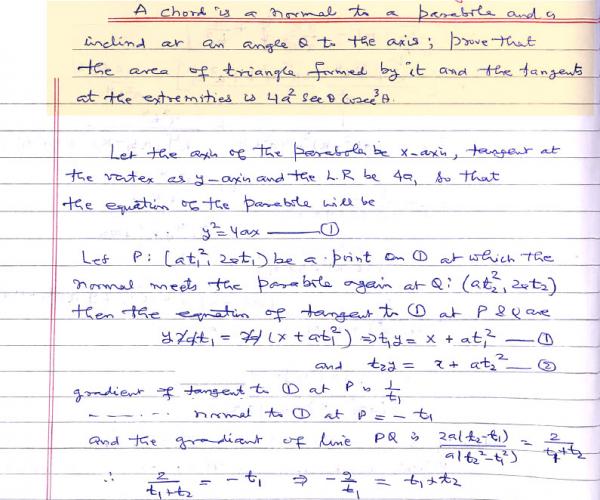 A chord is a normal to a parabola and is
inclind at an angle θ to the axis; prove that
the area of triangle formed by it and the tangents
at the extremities is 4a² sec θ cosec³ θ.
Let the axis of the parabola be x-axis, tangent at
the vertex as y-axis and the L.R be 4a, so that
the equation of the parabola will be
y² = 4ax —— ①
Let P: (at₁², 2at₁) be a point on ① at which the
normal meets the parabola again at Q: (at₂², 2at₂)
then the equation of tangent to ① at P & Q are
y 2at₁ = 2a (x + at₁²) ⇒ t₁y = x + at₁² — ①
and t₂y = x + at₂² — ②
gradient of tangent to ① at P is 1/t₁
— — ... normal to ① at P = - t₁
and the gradient of line PQ is 2a(t₂-t₁)/a(t₂²-t₁²) = 2/t₁+t₂
∴ 2/t₁+t₂ = -t₁ ⇒ -2/t₁ = t₁+t₂